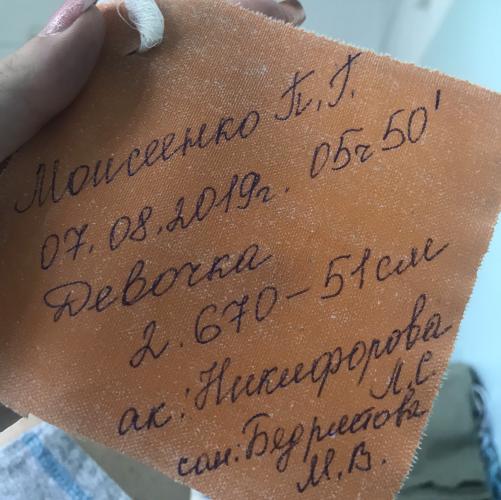 Моисеенко П. Г.
07.08.2019г. 05ч 50'
Девочка
2.670-51см
ак: Никифорова
Л.С.
сан:
М.В.